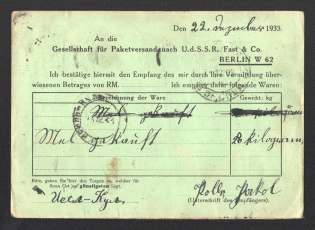 Den 22. Dezember 1933
An die
Gesellschaft für Paketversand nach U.d.S.S.R. Fast & Co.
BERLIN W 62
Ich bestätige hiermit den Empfang des mir durch Ihre Vermittlung über-
wiesenen Betrages von RM. Ich empfing dafür folgende Waren:
Bezeichnung der Ware Gewicht: kg
Mel gekauft
Mel gekauft kilogramm
Bitte, geben Sie hier den Torgsin an, welcher für
Ihren Ort am günstigsten liegt.
(Unterschrift des Empfängers).